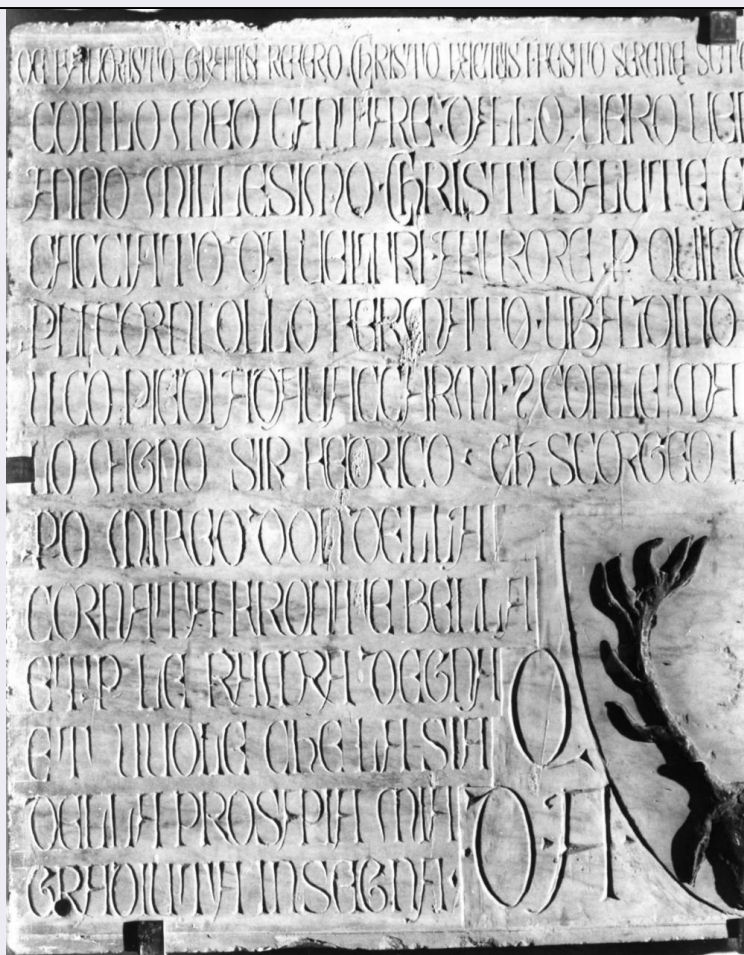 DE FAVORE ISTO GRATIS REFERO CHRISTO FACTUS FESTO SERENE
CON LO MEO CANTARE DALLO VERO
ANNO MILLESIMO CHRISTI SALUTE
CACCIATO DA VELTRI A FURORE P QUINT
PLI CORNI OLLO FERMATO UBALDINO
UCO PIEDI AD AVACCARMI CON LE MA
LO MAGNO SIR FEDRICO CH SCORGEO
PO MI FEO DON DELLA
CORNATA FRONTE BELLA
ET P LE RAMORA DEGNA
ET VUOLE CHE LA SIA
DELLA PROSAPIA MIA
GRADIUTA INSEGNA
Q
D A